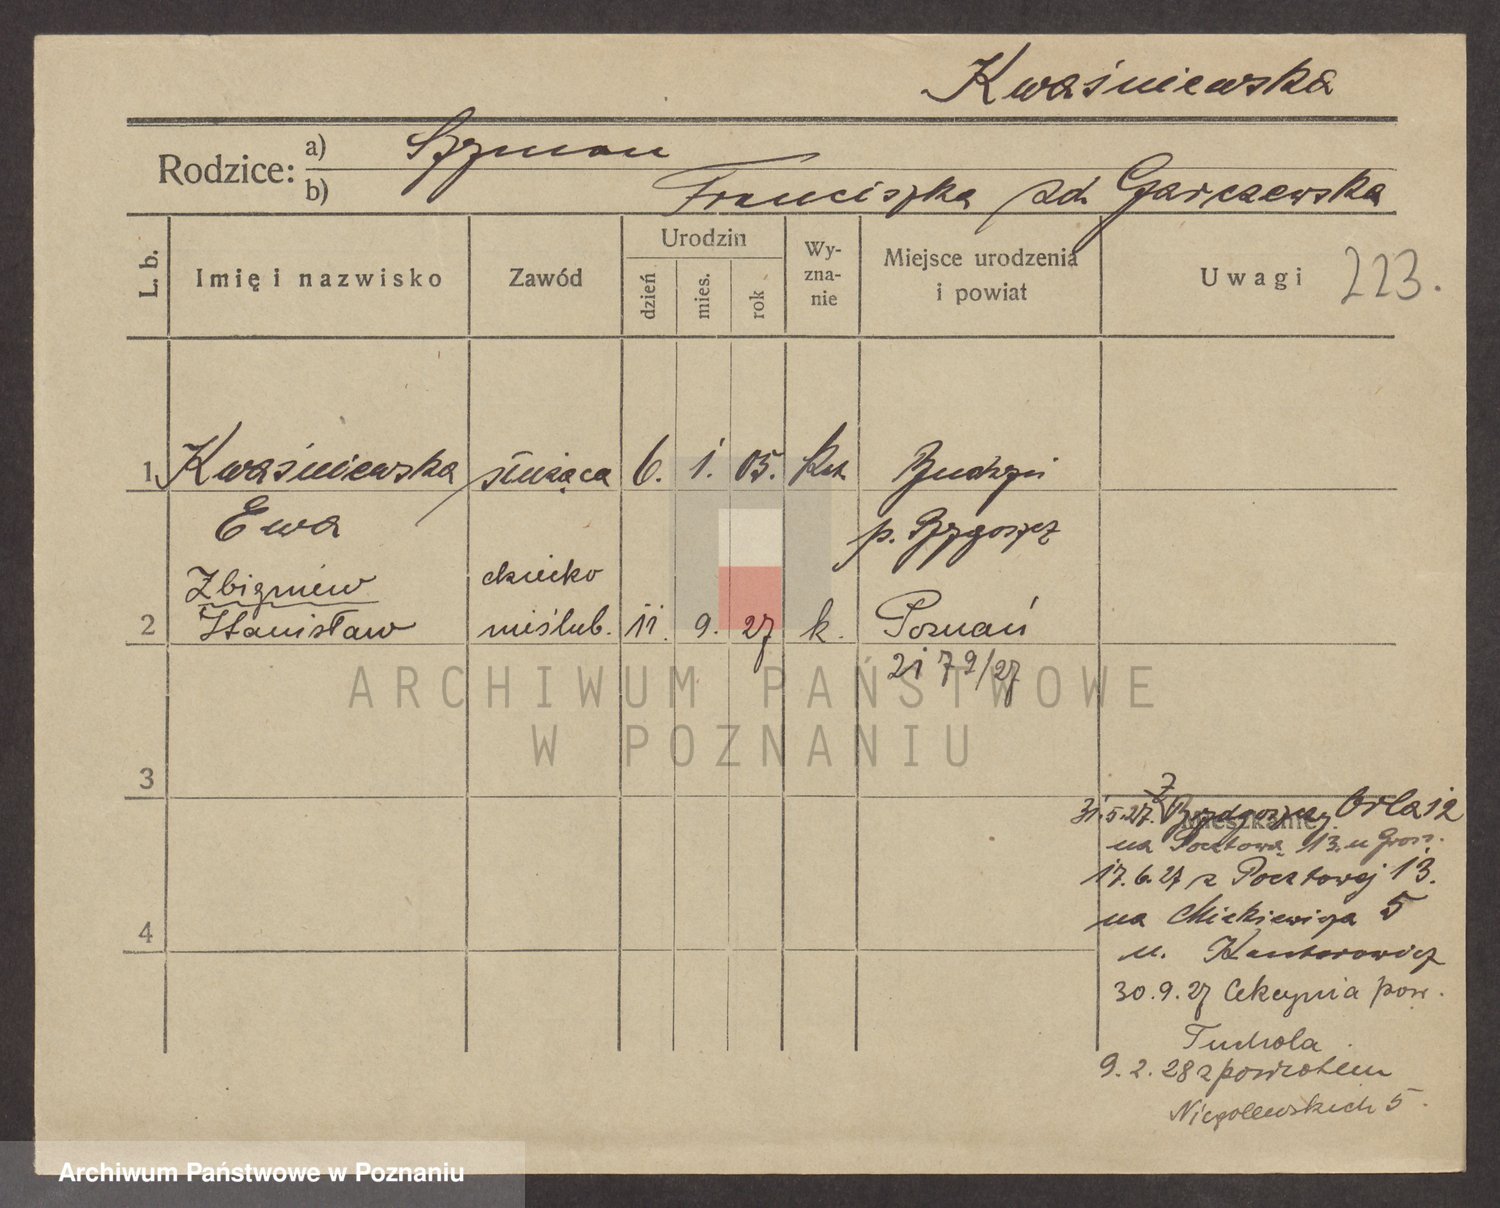 Kwaśniewska
Rodzice: a) Szymon
b) Franciszka zd. Garczewska
L. b.
Imię i nazwisko
Zawód
Urodzin
dzień
mies.
rok
Wy-
zna-
nie
Miejsce urodzenia
i powiat
Uwagi 223.
1 Kwaśniewska służąca 6. 1. 05. Kat.
Ewa p. Bydgoszcz
Zbigniew dziecko
2 Stanisław nieślub. 11. 9. 27 k. Poznań
2179/27
ARCHIWUM PAŃSTWOWE
W POZNANIU
3
Mieszkanie
31.5.27. z Bydgoszczy Orla 12
na Pocztową 13. u
17.6.27 z Pocztowej 13.
4
na Mickiewicza 5
u. Kantorowicz
30.9.27 Cekcynia pow.
Tuchola
9.2.28 z powrotem
Niegolewskich 5.
Archiwum Państwowe w Poznaniu